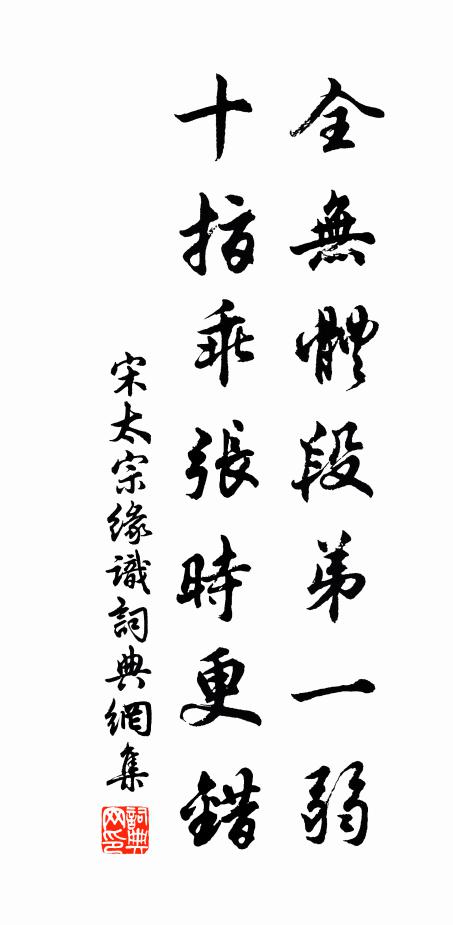 全無體段弟一弱
十指乖張時更錯
宋太宗緣識詞典網集
詞典網印